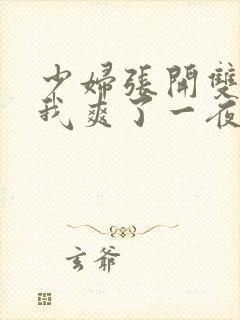 少婦張開雙
我爽了一夜
玄爺